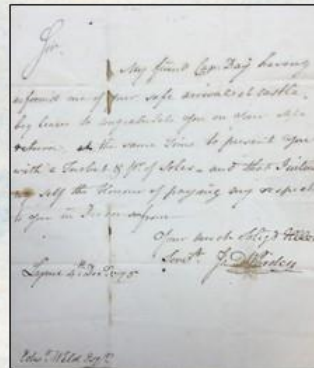 Sir
My friend Cap. Day having
informed me of your safe arrival at castle
beg leave to congratulate you on your safe
return, at the same time to present you
with a Turbot & Pr. of Soles - and that I intend
my self the Honour of paying my respects
to you in
Your much Oblig'd Hble
Servt. J.
4th Decr. 1795
Edwd. Weld Esqr.